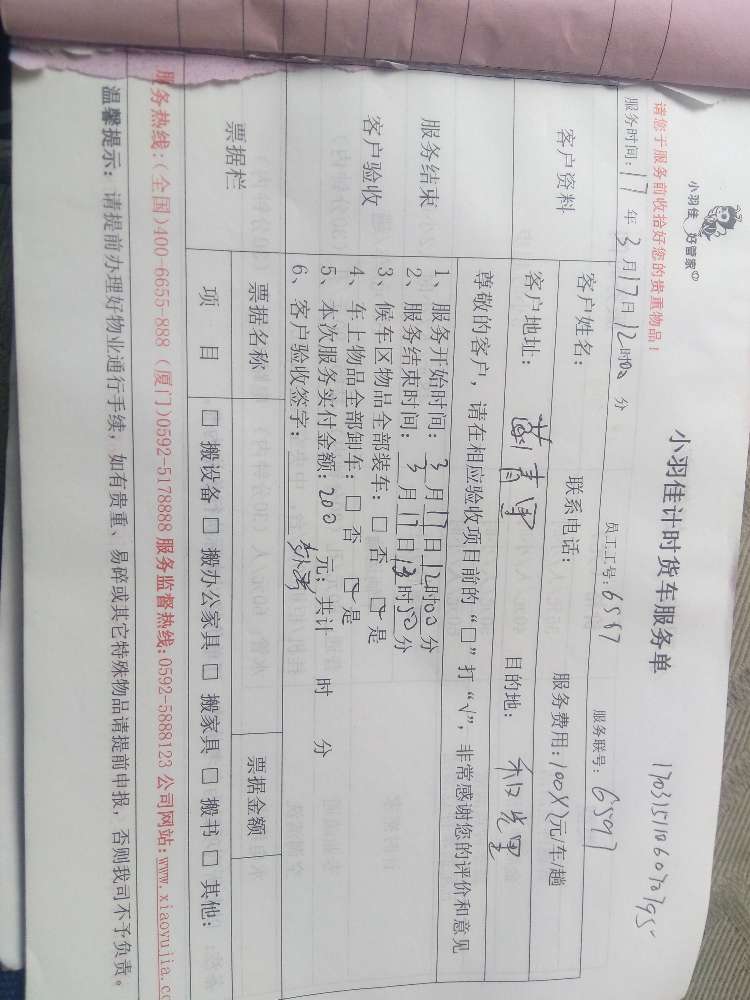 小羽佳 好管家
小羽佳计时货车服务单
请您于服务前收拾好您的贵重物品！
服务时间：17年3月17日12时00分 员工工号：6597 服务联号：6597
客户资料
客户姓名： 联系电话： 服务费用：100X2元/车/趟
客户地址： 青里 目的地：和光里
尊敬的客户，请在相应验收项目前的“□”打“√”，非常感谢您的评价和意见
服务结束
客户验收
1、服务开始时间：3月17日12时00分
2、服务结束时间：3月17日13时50分
3、候车区物品全部装车：□ 否 ☑ 是
4、车上物品全部卸车：□ 否 ☑ 是
5、本次服务实付金额：200 元；共计 时 分
6、客户验收签字：
票据栏
票据名称 票据金额
项 目 □ 搬设备 □ 搬办公家具 □ 搬家具 □ 搬书 □ 其他：
服务热线：(全国)400-6655-888 (厦门)0592-5178888 服务监督热线：0592-5888123 公司网站：www.xiaoyujia.co
温馨提示：请提前办理好物业通行手续，如有贵重、易碎或其它特殊物品请提前申报，否则我司不予负责。